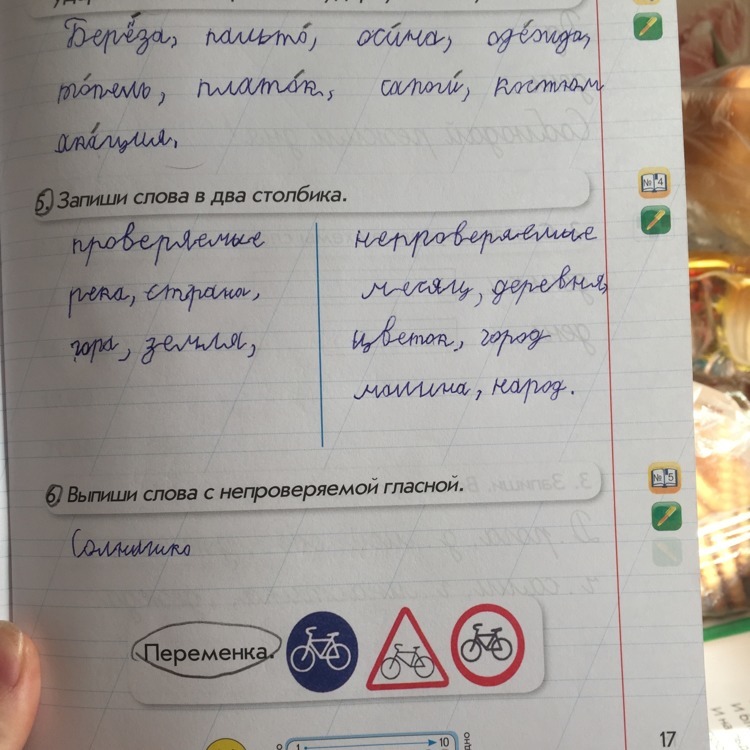 Берёза, пальто, осина, одежда,
тополь, платок, сапоги, костюм
акация.
5. Запиши слова в два столбика.
№ 4
проверяемые
река, страна,
гора, земля,
непроверяемые
месяц, деревня,
цветок, город
машина, народ.
6. Выпиши слова с непроверяемой гласной.
№ 5
Солнышко
Переменка.
1 10
17